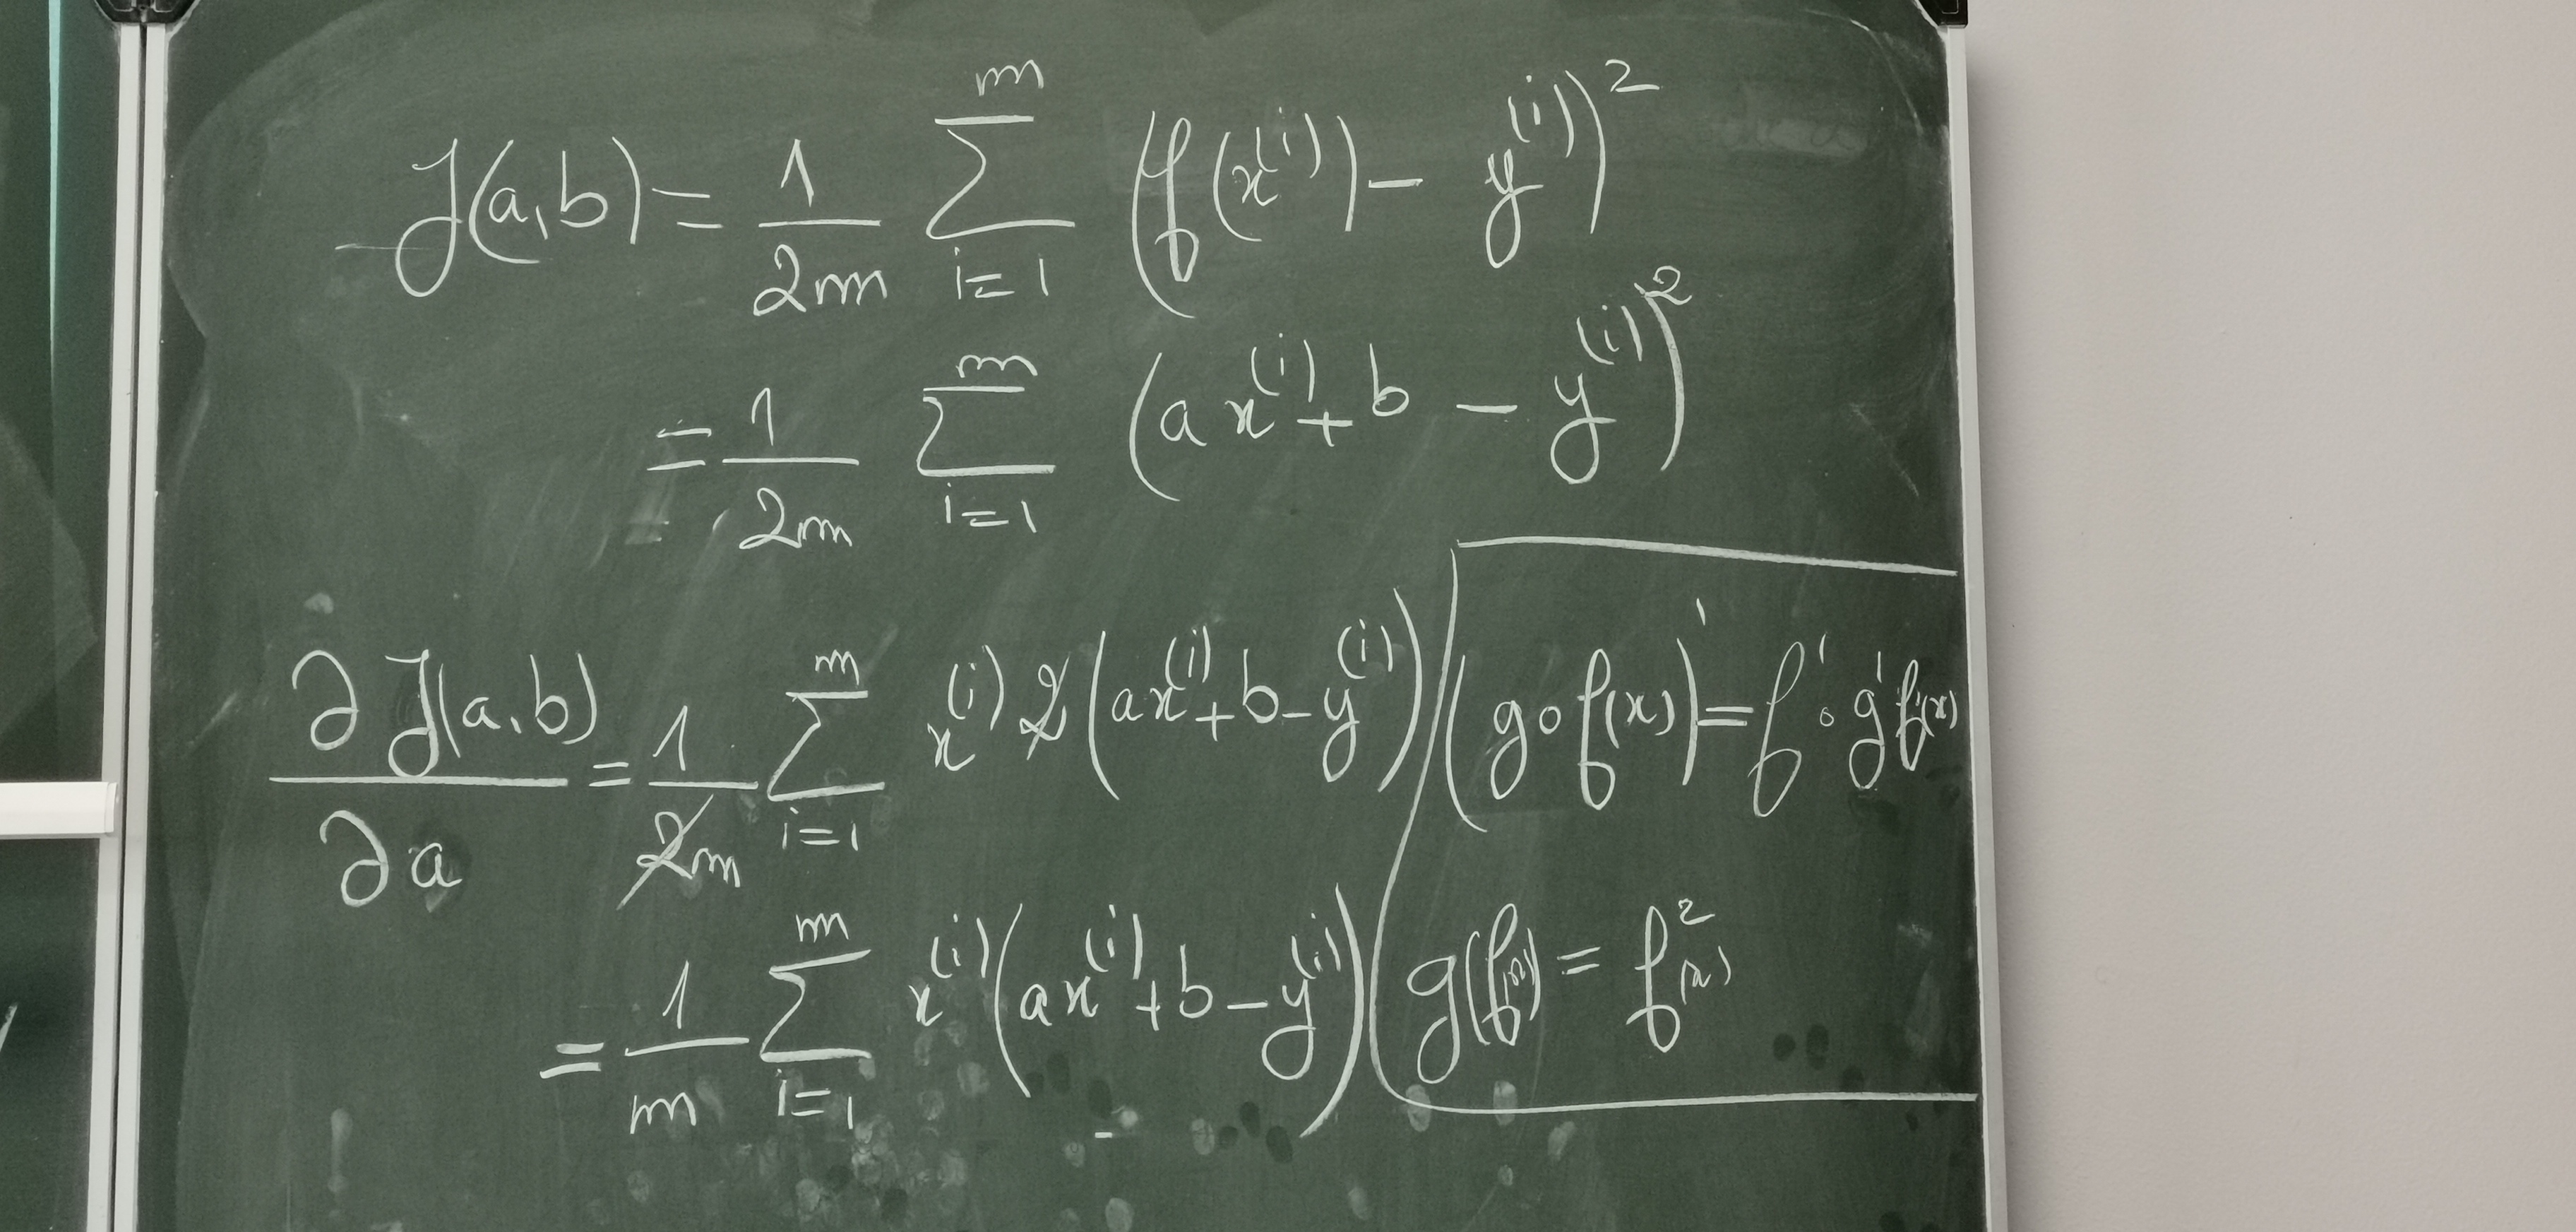 J(a,b) = 1/2m ∑_{i=1}^{m} (f(x^{(i)}) - y^{(i)})^2
= 1/2m ∑_{i=1}^{m} (ax^{(i)} + b - y^{(i)})^2
∂J(a,b)/∂a = 1/2m ∑_{i=1}^{m} x^{(i)} 2 (ax^{(i)} + b - y^{(i)})
= 1/m ∑_{i=1}^{m} x^{(i)} (ax^{(i)} + b - y^{(i)})
(g∘f(x))' = f'∘g'f(x)
g(f(x)) = f^2(x)